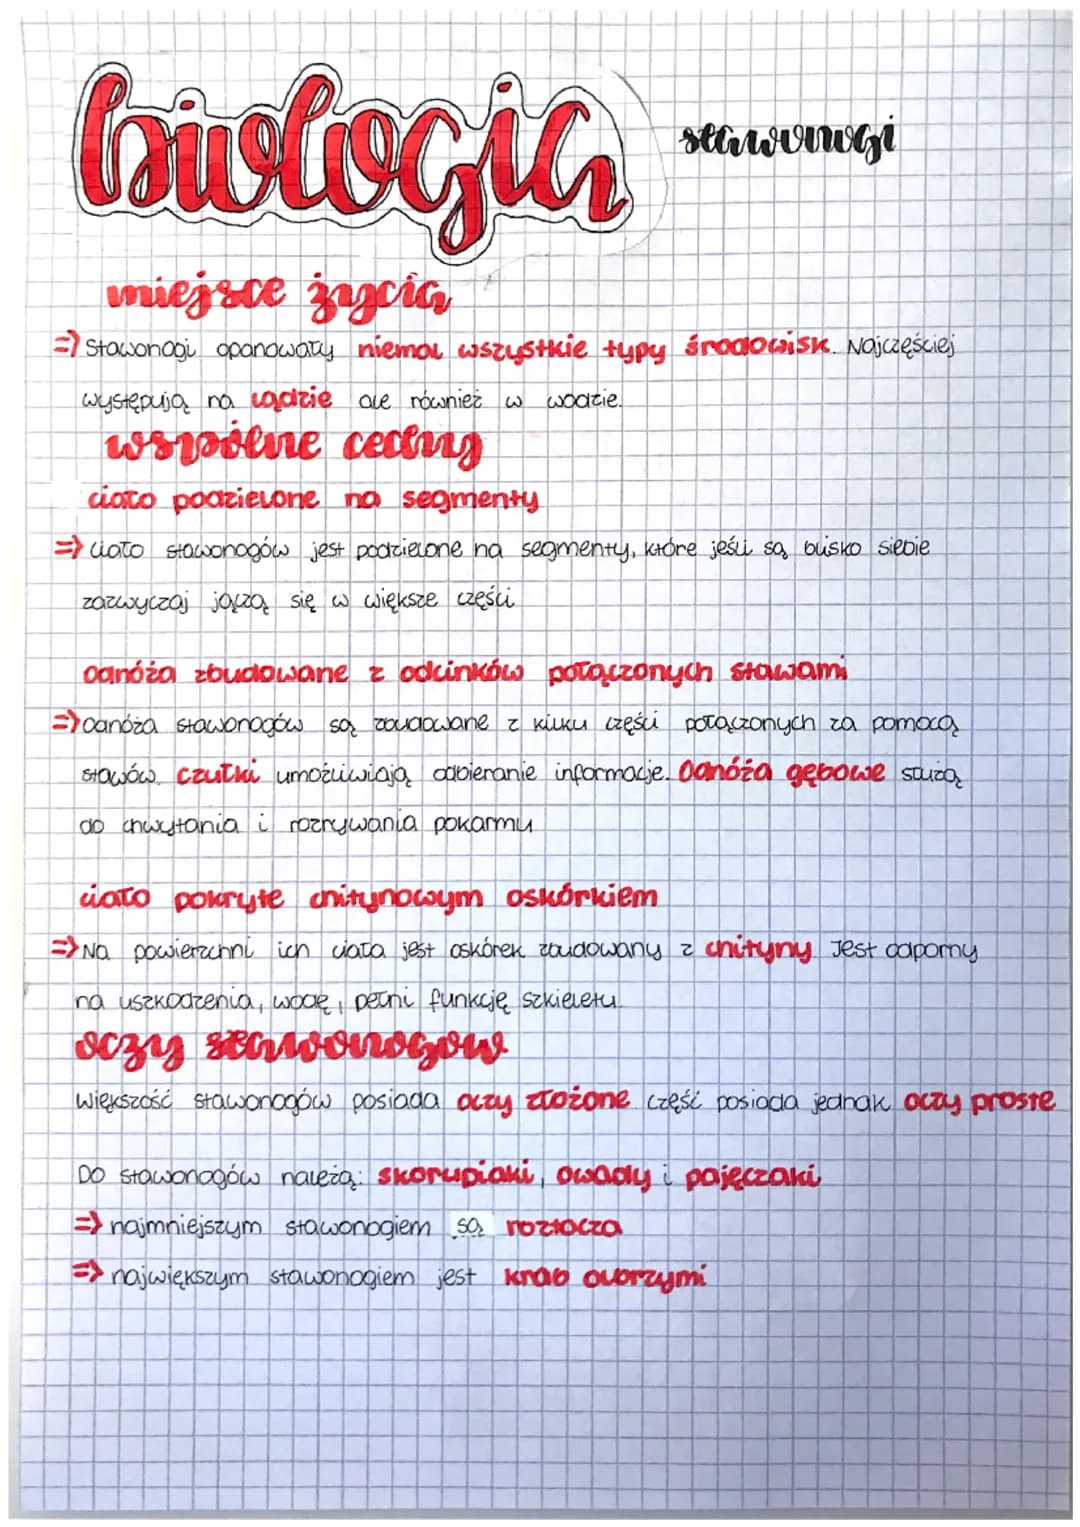 biologia
stawonogi
miejsce życia
=> Stawonogi opanowały niemal wszystkie typy środowisk. Najczęściej
występują na lądzie ale również w wodzie.
wspólne cechy
ciało podzielone na segmenty
=> ciało stawonogów jest podzielone na segmenty, które jeśli są blisko siebie
zazwyczaj jączą się w większe części
odnóża zbudowane z odcinków połączonych stawami
=> odnóża stawonogów są zbudowane z kilku części połączonych za pomocą
stawów. czułki umożliwiają odbieranie informacje. Odnóża gębowe służą
do chwytania i rozrywania pokarmu
ciało pokryte chitynowym oskórkiem
=> Na powierzchni ich ciała jest oskórek zbudowany z chityny. Jest odporny
na uszkodzenia, wodę, pełni funkcję szkieletu.
oczy stawonogów
większość stawonogów posiada oczy złożone część posiada jednak oczy proste
Do stawonogów należą: skorupiaki, owady i pajęczaki
=> najmniejszym stawonogiem są roztocza
=> największym stawonogiem jest krab olbrzymi